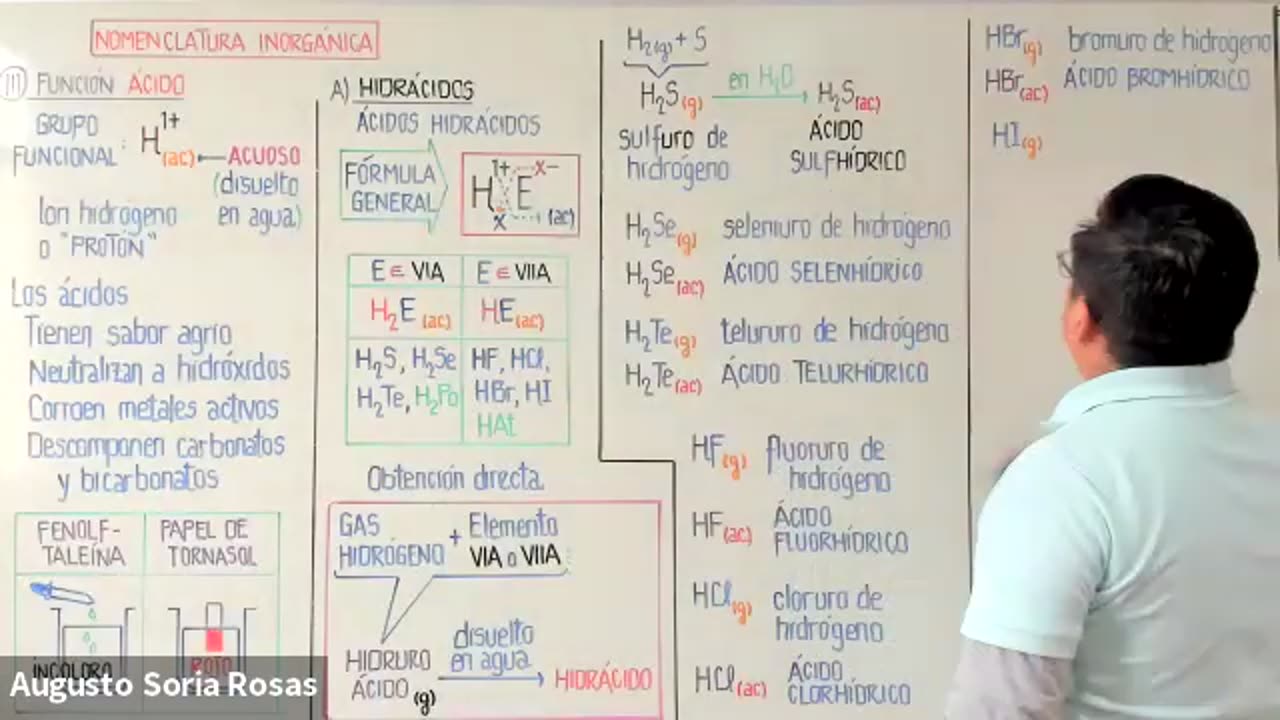 NOMENCLATURA INORGÁNICA
III) FUNCIÓN ÁCIDO
GRUPO
FUNCIONAL : H1+(ac) ACUOSO
(disuelto
en agua)
Ion hidrógeno
o "PROTÓN"
Los ácidos
Tienen sabor agrio
Neutralizan a hidróxidos
Corroen metales activos
Descomponen carbonatos
y bicarbonatos
FENOLF-
TALEÍNA
PAPEL DE
TORNASOL
INCOLORO
ROJO
A) HIDRÁCIDOS
ÁCIDOS HIDRÁCIDOS
FÓRMULA
GENERAL
H1+x Ex- (ac)
E ∈ VIA E ∈ VIIA
H2E (ac) HE(ac)
H2S, H2Se HF, HCl,
H2Te, H2Po HBr, HI
HAt
Obtención directa
GAS
HIDRÓGENO + Elemento
VIA o VIIA
HIDRURO
ÁCIDO(g)
disuelto
en agua
HIDRÁCIDO
H2(g) + S
H2S(g) en H2O H2S(ac)
sulfuro de
hidrógeno
ÁCIDO
SULFHÍDRICO
H2Se(g) seleniuro de hidrógeno
H2Se(ac) ÁCIDO SELENHÍDRICO
H2Te(g) telururo de hidrógeno
H2Te(ac) ÁCIDO TELURHÍDRICO
HF(g) fluoruro de
hidrógeno
HF(ac) ÁCIDO
FLUORHÍDRICO
HCl(g) cloruro de
hidrógeno
HCl(ac) ÁCIDO
CLORHÍDRICO
HBr(g) bromuro de hidrógeno
HBr(ac) ÁCIDO BROMHÍDRICO
HI(g)
Augusto Soria Rosas